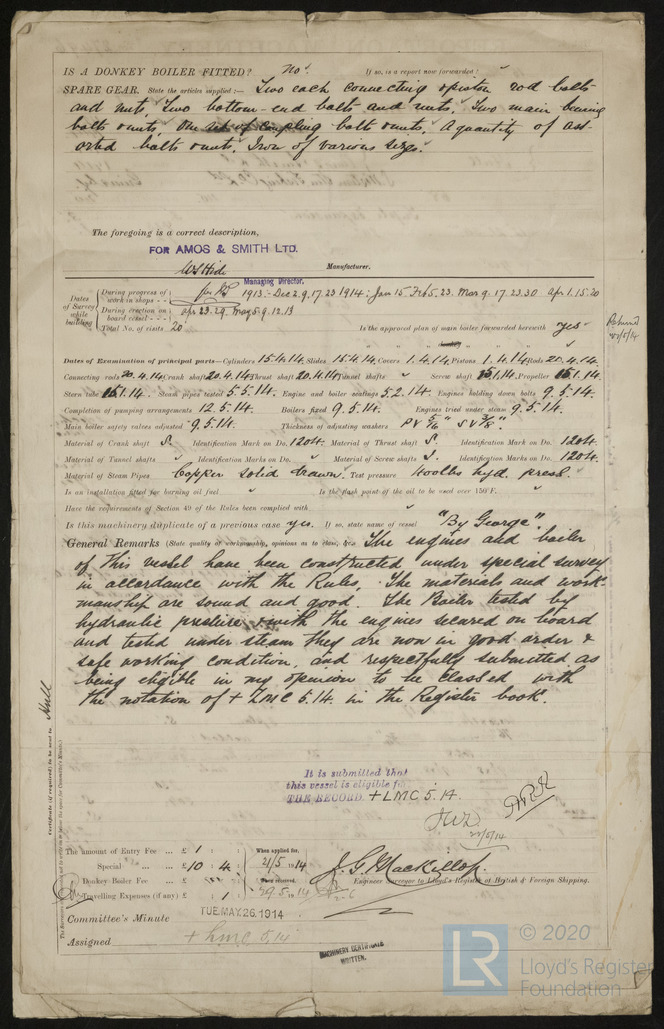 IS A DONKEY BOILER FITTED? No. If so, is a report now forwarded?
SPARE GEAR. State the articles supplied:— Two each connecting & piston rod bolts
and nuts, Two bottom-end bolts and nuts. Two main bearing
bolts & nuts, One set of coupling bolts & nuts, A quantity of ass-
orted bolts & nuts. Iron of various sizes.
The foregoing is a correct description,
FOR AMOS & SMITH LTD.
Manufacturer.
Managing Director.
Dates of Survey while building
During progress of work in shops - - 1913:- Dec 2. 9. 17. 23 1914: Jan 15 Feb 5. 23. Mar 9. 17. 23. 30 Apr 1. 15. 20
During erection on board vessel - - - Apr 23. 29. May 5. 9. 12. 13
Total No. of visits 20 Is the approved plan of main boiler forwarded herewith yes
Dates of Examination of principal parts—Cylinders 15.4.14. Slides 15.4.14. Covers 1.4.14 Pistons 1.4.14 Rods 20.4.14.
Connecting rods 20.4.14 Crank shaft 20.4.14 Thrust shaft 20.4.14 Tunnel shafts " Screw shaft 15.1.14. Propeller 15.1.14.
Stern tube 15.1.14. Steam pipes tested 5.5.14. Engine and boiler seatings 5.2.14. Engines holding down bolts 9.5.14.
Completion of pumping arrangements 12.5.14. Boilers fixed 9.5.14. Engines tried under steam 9.5.14.
Main boiler safety valves adjusted 9.5.14. Thickness of adjusting washers PV 5/16" SV 3/8".
Material of Crank shaft S. Identification Mark on Do. 1204. Material of Thrust shaft S. Identification Mark on Do. 1204.
Material of Tunnel shafts " Identification Marks on Do. " Material of Screw shafts S. Identification Marks on Do. 1204.
Material of Steam Pipes Copper solid drawn. Test pressure 400lbs hyd. press.
Is an installation fitted for burning oil fuel " Is the flash point of the oil to be used over 150°F. "
Have the requirements of Section 49 of the Rules been complied with "
Is this machinery duplicate of a previous case yes. If so, state name of vessel "By George".
General Remarks (State quality of workmanship, opinions as to class, &c.) The engines and boiler
of this vessel have been constructed under special survey
in accordance with the Rules. The materials and work-
manship are sound and good. The Boiler tested by
hydraulic pressure & with the engines secured on board
and tested under steam they are now in good order &
safe working condition, and respectfully submitted as
being eligible in my opinion to be classed with
the notation of + LMC 5.14. in the Register book.
Certificate (if required) to be sent to Hull
It is submitted that
this vessel is eligible for
THE RECORD + LMC 5.14.
The amount of Entry Fee ... £ 1 : When applied for,
Special ... ... £ 10 . 4 : 21/5 1914
Donkey Boiler Fee ... ... £ When received,
Travelling Expenses (if any) £ 1 29.5.1914
J. G. Mackillop.
Engineer Surveyor to Lloyd's Register of British & Foreign Shipping.
Committee's Minute TUE. MAY 26. 1914
Assigned + LMC 5.14
MACHINERY CERTIFICATE
WRITTEN.
© 2020
LR Lloyd's Register
Foundation